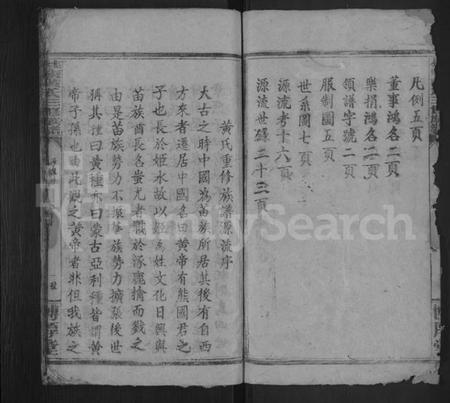 凡例五頁
董事鴻名二頁
樂捐鴻名二頁
領譜字號一頁
服制圖五頁
世系圖七頁
源流考十六頁
源流世錄二十三頁
黄氏重修族譜源流序
太古之時中國為苗族所居其後有自西
方來者遷居中國名曰黄帝有熊國君之
子也長於姬水故以姬為姓文化日興與
苗族酋長名蚩尤者戰於涿鹿擒而戮之
由是苗族勢力不振華族勢力擴張後世
稱其種曰黄種亦曰蒙古亞利種皆謂黄
帝子孫也由此觀之黄帝者非但我族之
MyHeritage FamilySearch